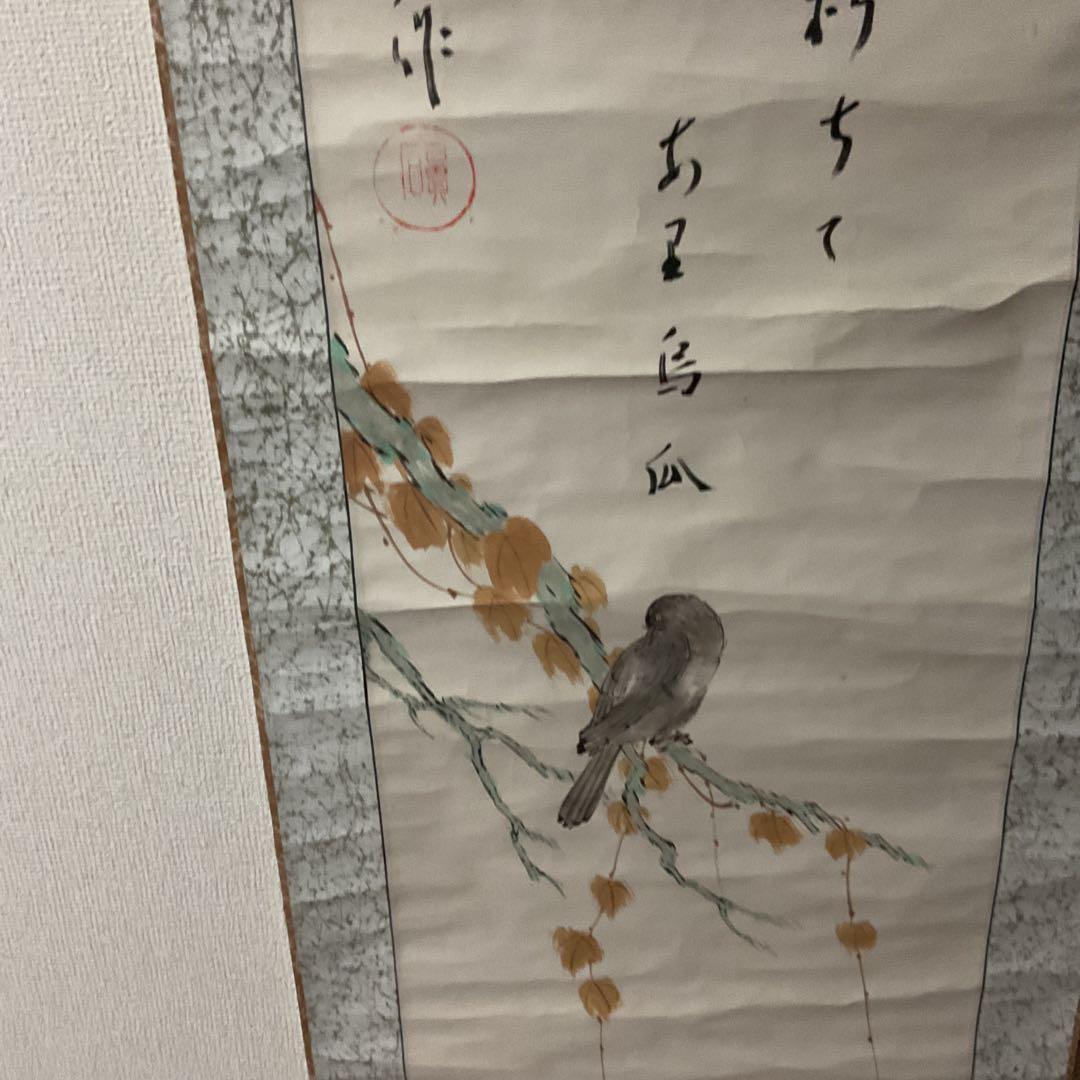 ちて
あ里烏瓜
作